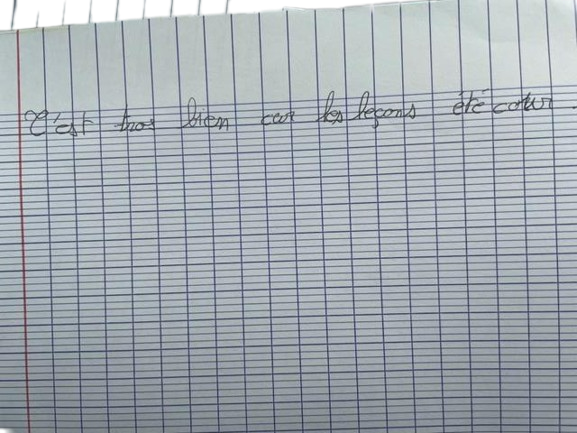 C'est tros bien car les leçons été cour.